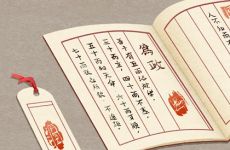 人不知而
為政
吾十有五而志於學，
三十而立，四十而不惑，
五十而知天命，六十而耳順，
七十而從心所欲，不逾矩。